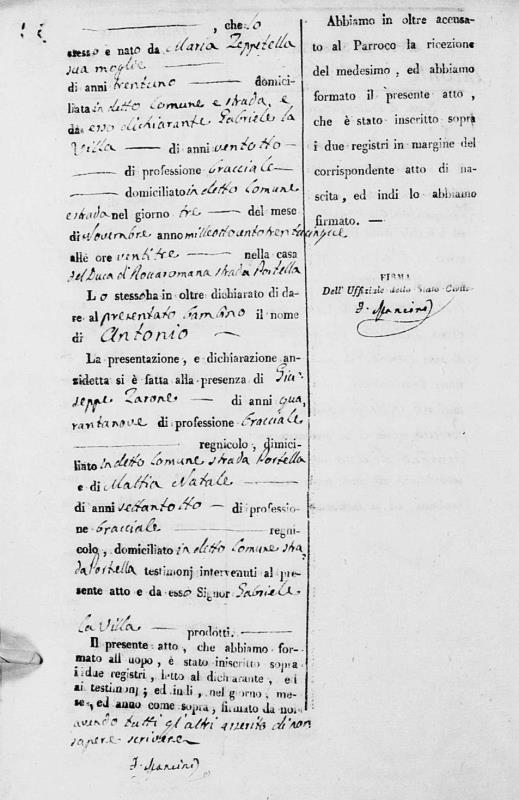 , che lo
stesso è nato da Maria Zeppetella
sua moglie
di anni trentuno domici-
liata in detto Comune e strada, e
da esso dichiarante Gabriele la
Villa di anni ventotto
di professione bracciale
domiciliato in detto Comune
e strada nel giorno tre del mese
di Novembre anno milleottocento trentacinque
alle ore ventitre nella casa
del Duca di Roccaromana strada Portella
Lo stesso ha in oltre dichiarato di da-
re al presentato bambino il nome
di Antonio
La presentazione, e dichiarazione an-
zidetta si è fatta alla presenza di Giu-
seppe Zarone di anni qua,
rantanove di professione bracciale
regnicolo, domici-
liato in detto Comune strada Portella
e di Mattia Natale
di anni settantotto di professio-
ne bracciale regni-
colo, domiciliato in detto Comune stra
da Portella testimonj intervenuti al pre-
sente atto e da esso Signor Gabriele
la Villa prodotti.
Il presente atto, che abbiamo for-
mato all' uopo, è stato iniscritto sopra
i due registri, letto al dichiarante, ed
ai testimonj; ed indi, nel giorno, me-
se, ed anno come sopra, firmato da noi
avendo tutti gl'altri asserito di non
sapere scrivere
F. Mancini
Abbiamo in oltre accusa-
to al Parroco la ricezione
del medesimo, ed abbiamo
formato il presente atto,
che è stato inscritto sopra
i due registri in margine del
corrispondente atto di na-
scita, ed indi lo abbiamo
firmato. —
FIRMA
Dell' Uffiziale dello Stato Civile
F. Mancini